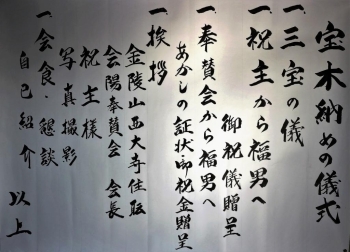 宝木納めの儀式
一、三宝の儀
一、祝主から福男へ
御祝儀贈呈
一、奉賛会から福男へ
あかしの証状・御祝金贈呈
一、挨拶
金陵山西大寺住職
会陽奉賛会 会長
祝主様
写真撮影
一、会食・懇談
自己紹介 以上